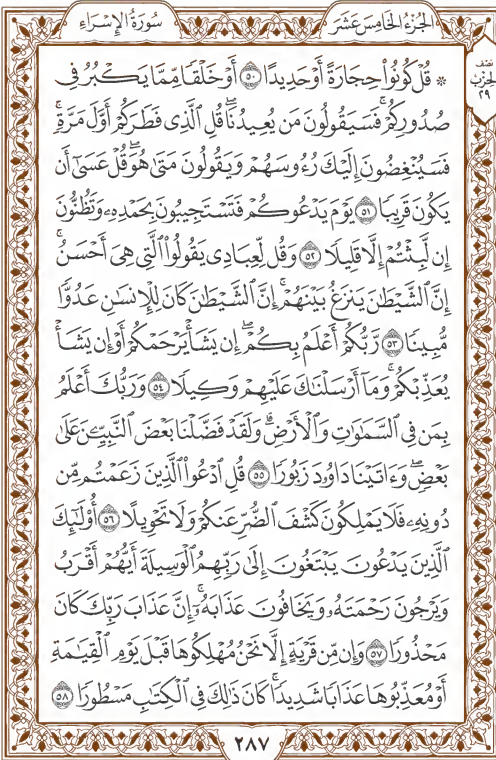 سُورَةُ الإِسْرَاءِ
الجُزْءُ الخَامِسَ عَشَرَ
نصف
الحزب
٢٩
۞ قُلْ كُونُوا۟ حِجَارَةً أَوْ حَدِيدًا ٥٠ أَوْ خَلْقًا مِّمَّا يَكْبُرُ فِى
صُدُورِكُمْ ۚ فَسَيَقُولُونَ مَن يُعِيدُنَا ۖ قُلِ ٱلَّذِى فَطَرَكُمْ أَوَّلَ مَرَّةٍ ۚ
فَسَيُنْغِضُونَ إِلَيْكَ رُءُوسَهُمْ وَيَقُولُونَ مَتَىٰ هُوَ ۖ قُلْ عَسَىٰٓ أَن
يَكُونَ قَرِيبًا ٥١ يَوْمَ يَدْعُوكُمْ فَتَسْتَجِيبُونَ بِحَمْدِهِۦ وَتَظُنُّونَ
إِن لَّبِثْتُمْ إِلَّا قَلِيلًا ٥٢ وَقُل لِّعِبَادِى يَقُولُوا۟ ٱلَّتِى هِىَ أَحْسَنُ ۚ
إِنَّ ٱلشَّيْطَـٰنَ يَنزَغُ بَيْنَهُمْ ۚ إِنَّ ٱلشَّيْطَـٰنَ كَانَ لِلْإِنسَـٰنِ عَدُوًّا
مُّبِينًا ٥٣ رَّبُّكُمْ أَعْلَمُ بِكُمْ ۖ إِن يَشَأْ يَرْحَمْكُمْ أَوْ إِن يَشَأْ
يُعَذِّبْكُمْ ۚ وَمَآ أَرْسَلْنَـٰكَ عَلَيْهِمْ وَكِيلًا ٥٤ وَرَبُّكَ أَعْلَمُ
بِمَن فِى ٱلسَّمَـٰوَٰتِ وَٱلْأَرْضِ ۗ وَلَقَدْ فَضَّلْنَا بَعْضَ ٱلنَّبِيِّـۧنَ عَلَىٰ
بَعْضٍ ۖ وَءَاتَيْنَا دَاوُۥدَ زَبُورًا ٥٥ قُلِ ٱدْعُوا۟ ٱلَّذِينَ زَعَمْتُم مِّن
دُونِهِۦ فَلَا يَمْلِكُونَ كَشْفَ ٱلضُّرِّ عَنكُمْ وَلَا تَحْوِيلًا ٥٦ أُو۟لَـٰٓئِكَ
ٱلَّذِينَ يَدْعُونَ يَبْتَغُونَ إِلَىٰ رَبِّهِمُ ٱلْوَسِيلَةَ أَيُّهُمْ أَقْرَبُ
وَيَرْجُونَ رَحْمَتَهُۥ وَيَخَافُونَ عَذَابَهُۥٓ ۚ إِنَّ عَذَابَ رَبِّكَ كَانَ
مَحْذُورًا ٥٧ وَإِن مِّن قَرْيَةٍ إِلَّا نَحْنُ مُهْلِكُوهَا قَبْلَ يَوْمِ ٱلْقِيَـٰمَةِ
أَوْ مُعَذِّبُوهَا عَذَابًا شَدِيدًا ۚ كَانَ ذَٰلِكَ فِى ٱلْكِتَـٰبِ مَسْطُورًا ٥٨
٢٨٧